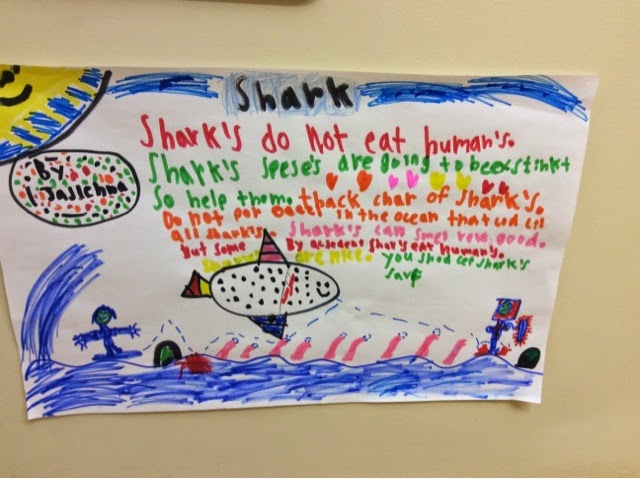 Shark
Shark's do not eat human's.
Shark's spese's are going to beexstinkt
So help them. tpack char of shark's.
Do not por in the ocean that ud cil
all shark's. Shark's can smel very good.
But some By acsedent shar's eat human's.
are nice. you shod let shark's
By